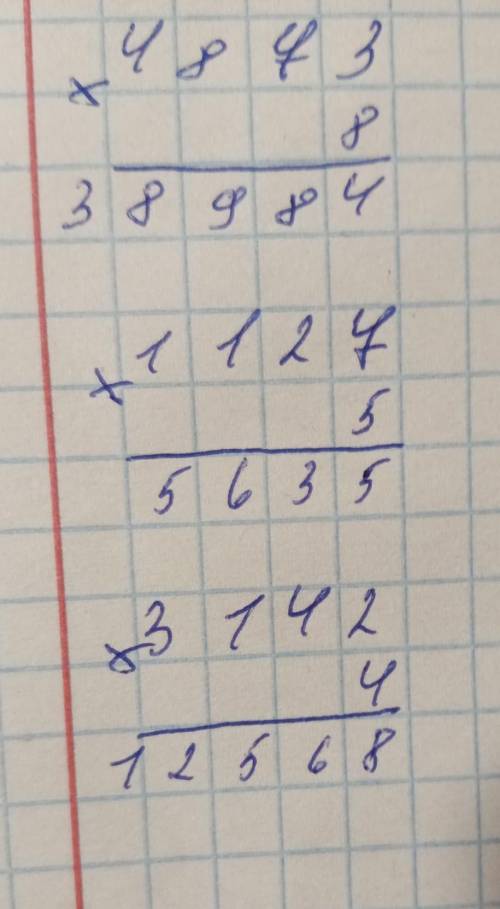 × 4873
8
38984
× 1127
5
5635
× 3142
4
12568